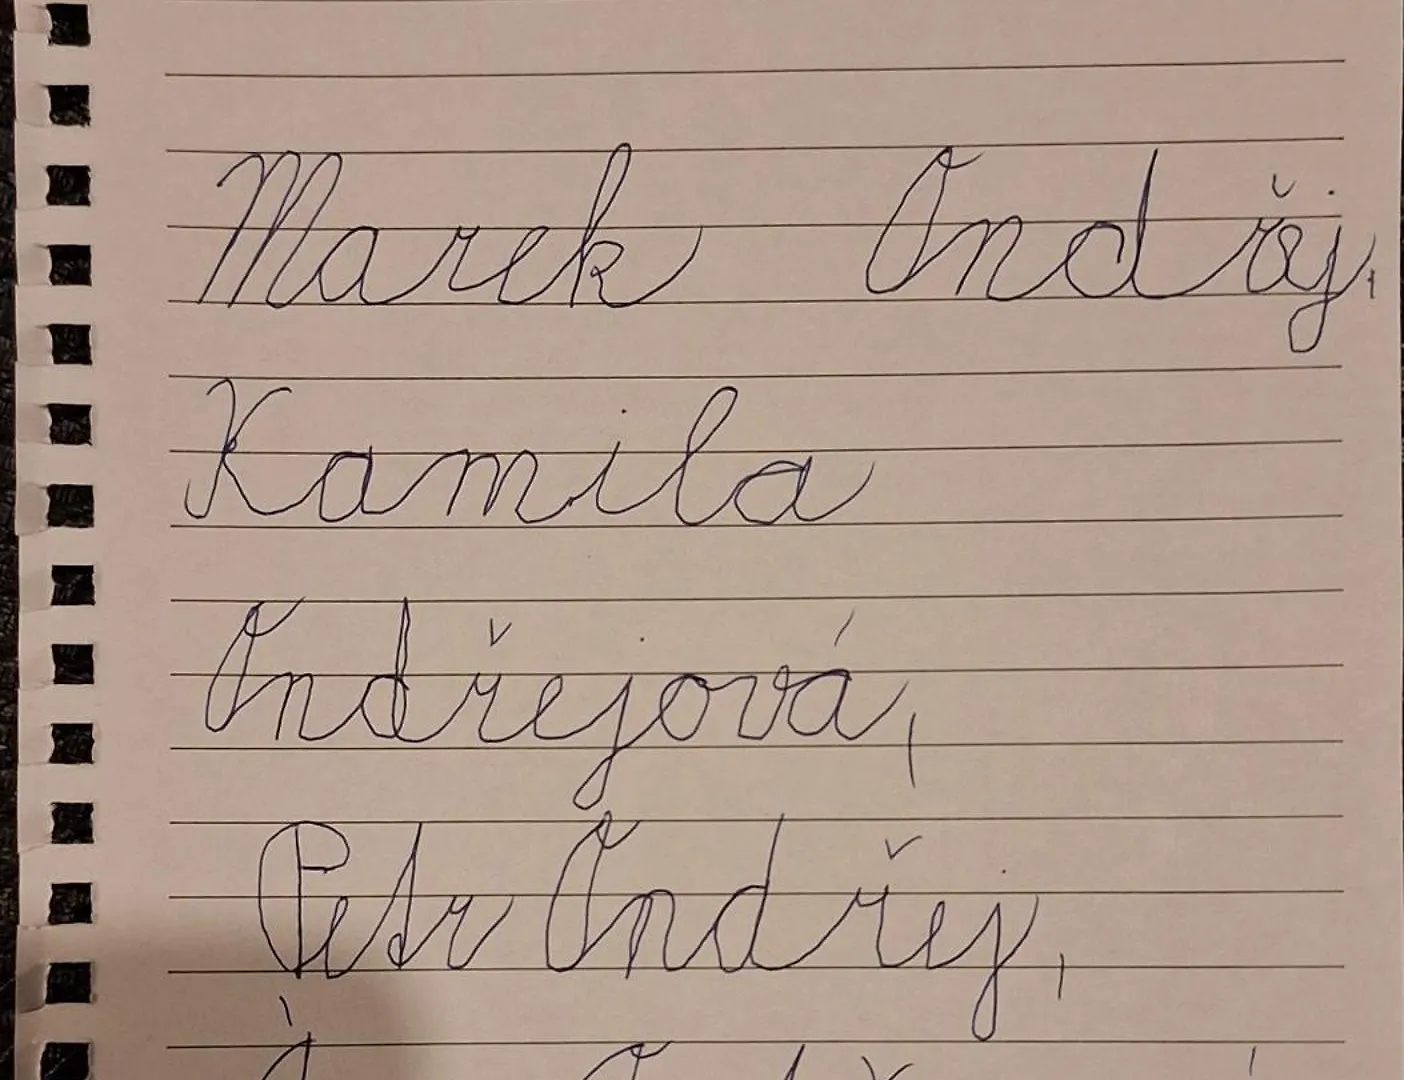 Marek Ondřej,
Kamila
Ondřejová,
Petr Ondřej,